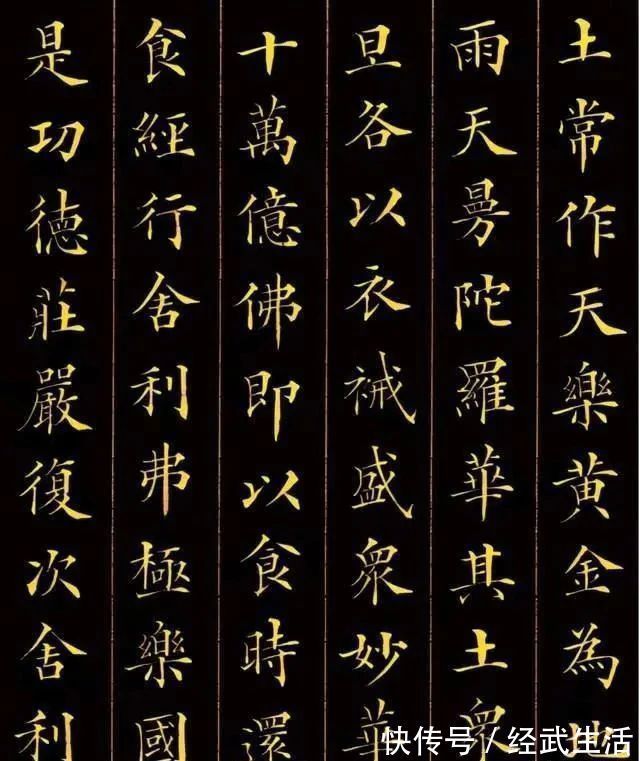 土常作天樂黄金為
雨天曼陀羅華其土衆
旦各以衣裓盛衆妙華
十萬億佛即以食時還
食經行舍利弗極樂國
是功德莊嚴復次舍利
快传号/经武生活